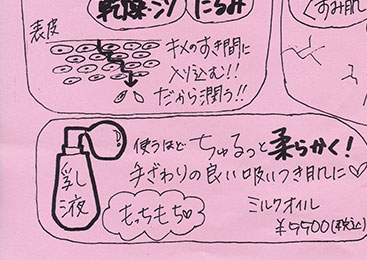 乾燥・シワ
たるみ
くすみ肌
表皮
キメのすき間に
入り込む!!
だから潤う!!
乳液
使うほど ちゅるっと柔らかく!
手ざわりの良い吸いつき肌に♡
もっちもち♡
ミルクオイル
¥5500(税込)